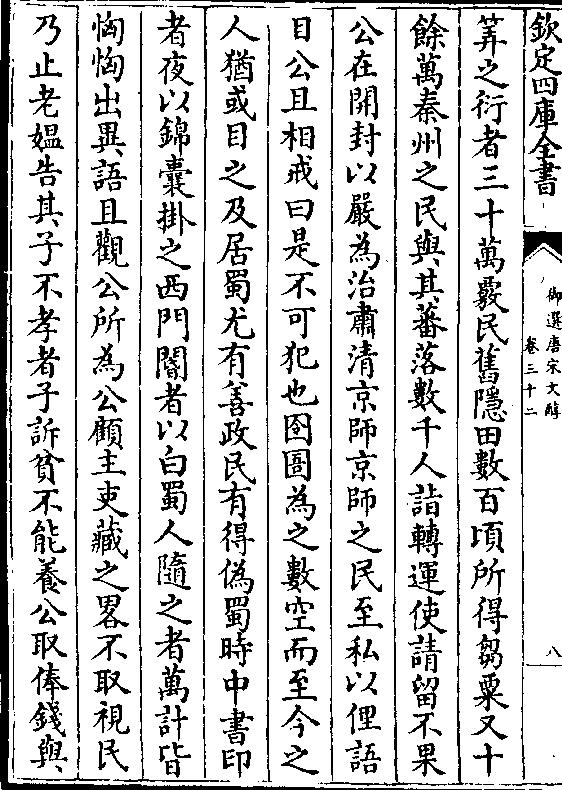 欽定四庫全書
御選唐宋文醇
卷三十二
八
筭之衍者三十萬覈民舊隱田數百頃所得芻粟又十
餘萬秦州之民與其蕃落數千人詣轉運使請留不果
公在開封以嚴為治肅清京師京師之民至私以俚語
目公且相戒曰是不可犯也囹圄為之數空而至今之
人猶或目之及居蜀尤有善政民有得偽蜀時中書印
者夜以錦囊掛之西門閽者以白蜀人隨之者萬計皆
恟恟出異語且觀公所為公顧主吏藏之畧不取視民
乃止老媼告其子不孝者子訴貧不能養公取俸錢與